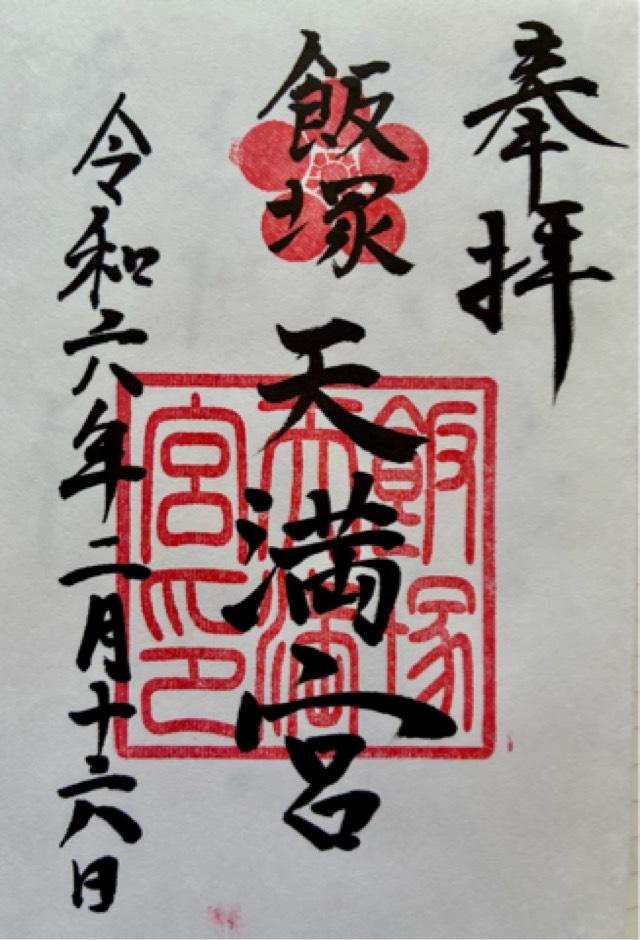 奉拝
飯塚天満宮
令和六年二月十六日
飯塚
天満
宮印